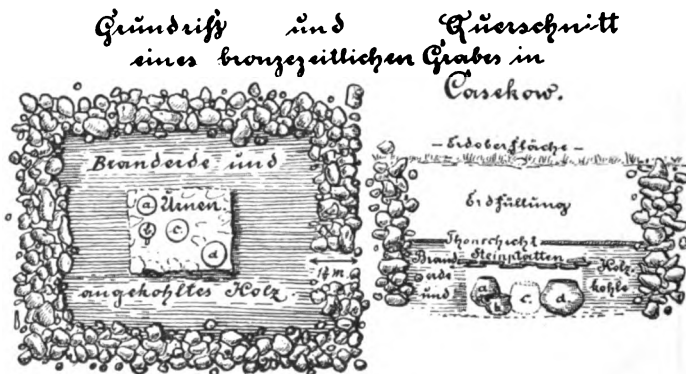 Grundriß und Querschnitt
eines bronzezeitlichen Grabes in
Casekow.
Branderde und
a Urnen
b c
d
½ m.
angekohltes Holz.
- Erdoberfläche -
Erdfüllung
Thonschicht
Steinplatten
Brand Holz-
erde kohle
und
a. b. c. d.